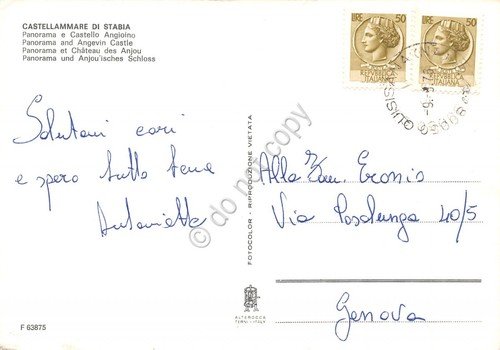 CASTELLAMMARE DI STABIA
Panorama e Castello Angioino
Panorama and Angevin Castle
Panorama et Château des Anjou
Panorama und Anjou'isches Schloss
LIRE 50
REPUBBLICA
ITALIANA
LIRE 50
REPUBBLICA
ITALIANA
QUISISANA
Salutoni cari
e spero tutto bene
Antonietta
do not copy
FOTOCOLOR - RIPRODUZIONE VIETATA
Alla
Via 40/5
Genova
ALTEROCCA
TERNI - ITALY
F 63875